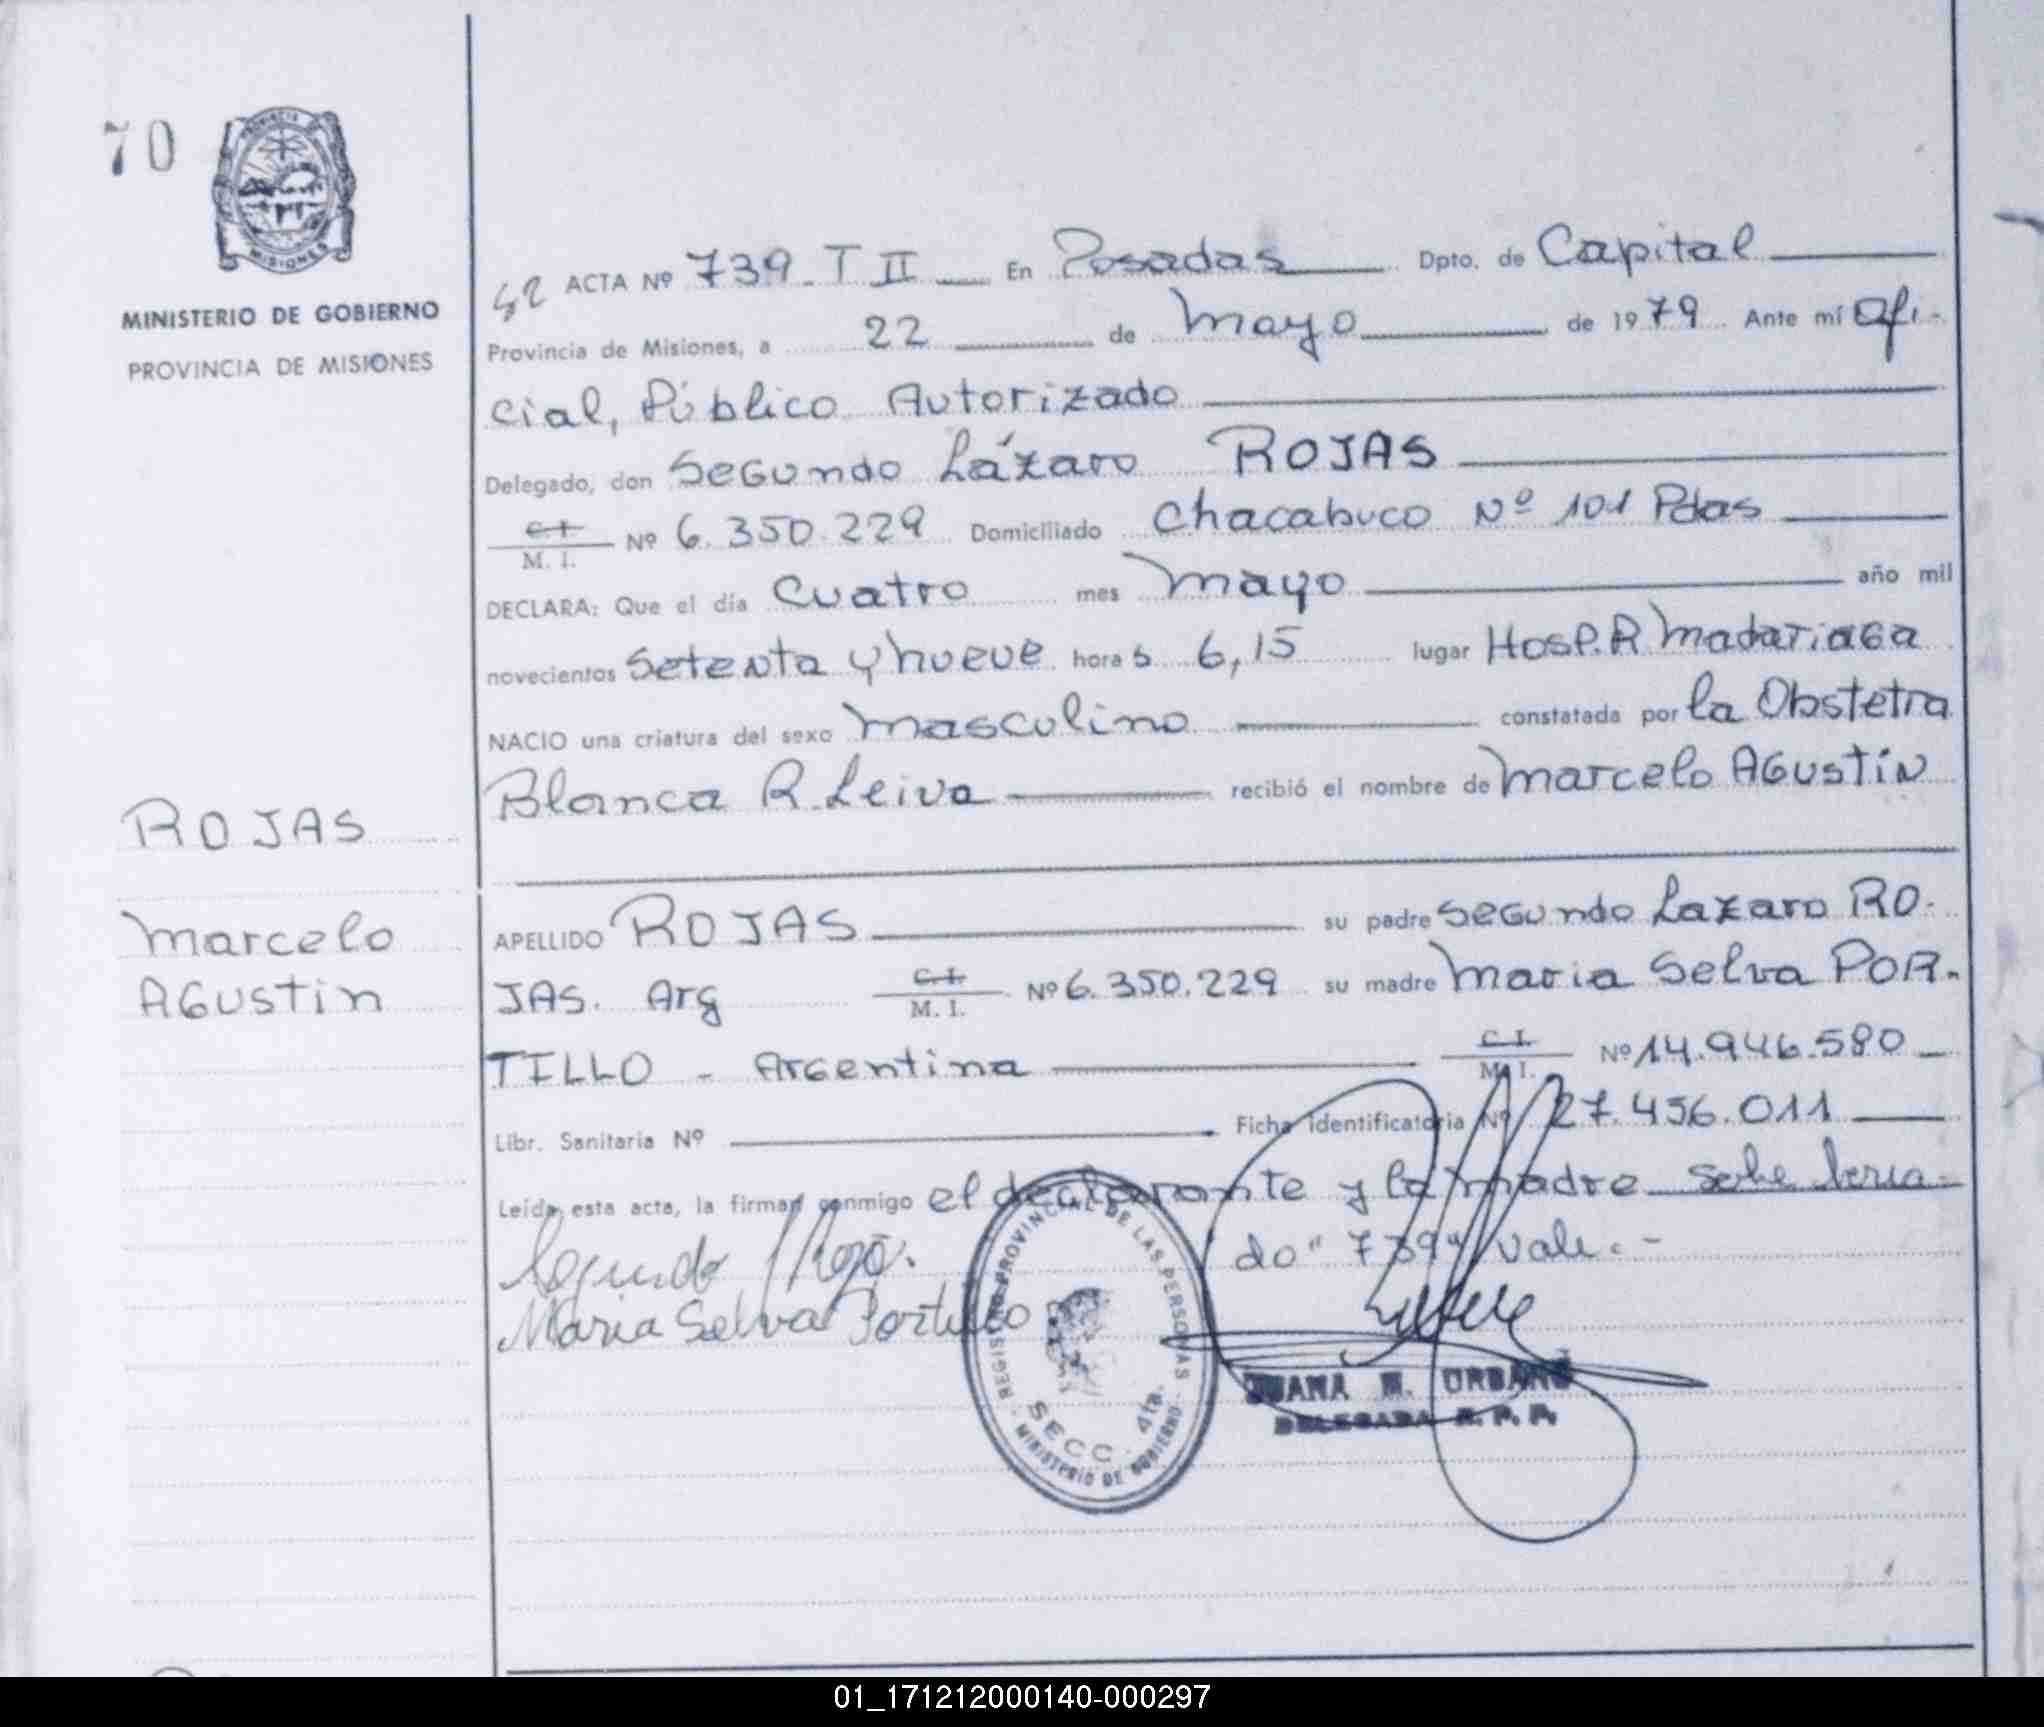 70
PROVINCIA
MISIONES
MINISTERIO DE GOBIERNO
PROVINCIA DE MISIONES
ACTA Nº 739 - T II En Posadas Dpto. de Capital
Provincia de Misiones, a 22 de Mayo de 1979 Ante mí Ofi-
cial, Público Autorizado
Delegado, don Segundo Lázaro ROJAS
C.I. M. I. Nº 6.350.229 Domiciliado Chacabuco Nº 101 Pdas
DECLARA: Que el día Cuatro mes Mayo año mil
novecientos Setenta y nueve hora s 6,15 lugar Hosp. R. Madariaga
NACIO una criatura del sexo Masculino constatada por la Obstetra
Blanca R. Leiva recibió el nombre de Marcelo AGustín
ROJAS
Marcelo
AGustin
APELLIDO ROJAS su padre Segundo Lazaro RO-
JAS. Arg C.I. M. I. Nº 6.350.229 su madre Maria Selva POR-
TILLO - Argentina C.I. M. I. Nº 14.946.580
Libr. Sanitaria Nº Ficha identificatoria Nº 27.456.011
Leída esta acta, la firman conmigo el declarante y la madre
do "739" vale.-
Segundo Rojas
Maria Selva Portillo
REGISTRO PROVINCIAL DE LAS PERSONAS
SECC. 4ta.
MINISTERIO DE GOBIERNO
JUANA M. URBANO
DELEGADA R. P. P.
01_171212000140-000297